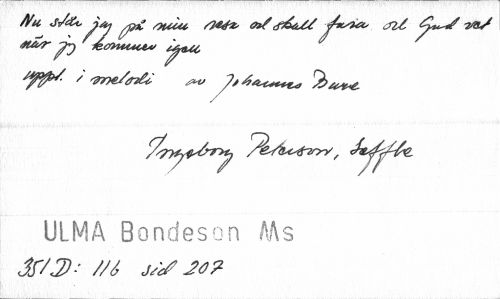 Nu står jag på min resa och skall fara och Gud vet
när jag kommer igen
uppt. i melodi av Johannes Bure
Ingeborg Peterson, Säffle
ULMA Bondeson Ms
351 D: 116 sid 207